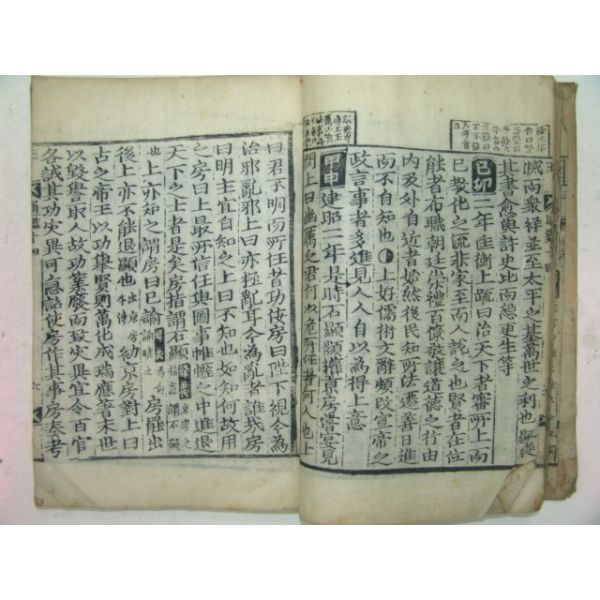 滅而衆祥並至太平之基萬世之利也顯
其書愈與許史比而怨更生等
己卯二年匡衡上疏曰治天下者審所上而
已敎化之流非家至而人說之也賢者在位
能者布職朝廷崇禮百僚敬讓道德之行由
內及外自近者始然後民知所法遷善日進
而不自知也上好儒術文辭頗改宣帝之
政言事者多進見人人自以爲得上意
甲申建昭二年是時石顯顓權京房嘗宴見
問上曰幽厲之君何以危所任者何人也上
曰君不明而所任者巧佞房曰陛下視今爲
治邪亂邪上曰亦極亂耳今爲亂者誰哉房
曰明主宜自知之上曰不知也如知何故用
之房曰上最所信任與圖事帷幄之中進退
天下之士者是矣房指謂石顯
上亦知之謂房曰已諭 房罷出
後上亦不能退顯也 出京房本傳 勑京房對上曰
古之帝王以功擧賢則萬化成瑞應著末世
以毁譽取人故功業廢而致災異宜令百官
各試其功災異可息詔使房作其事房奏考